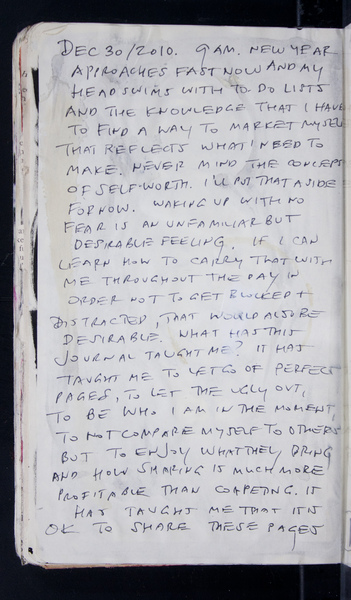 DEC 30/2010. 9 AM. NEW YEAR
APPROACHES FAST NOW AND MY
HEAD SWIMS WITH TO DO LISTS
AND THE KNOWLEDGE THAT I HAVE
TO FIND A WAY TO MARKET MYSELF
THAT REFLECTS WHAT I NEED TO
MAKE. NEVER MIND THE CONCEPT
OF SELF-WORTH. I'LL PUT THAT ASIDE
FOR NOW. WAKING UP WITH NO
FEAR IS AN UNFAMILIAR BUT
DESIRABLE FEELING. IF I CAN
LEARN HOW TO CARRY THAT WITH
ME THROUGHOUT THE DAY IN
ORDER NOT TO GET BLOCKED +
DISTRACTED, THAT WOULD ALSO BE
DESIRABLE. WHAT HAS THIS
JOURNAL TAUGHT ME? IT HAS
TAUGHT ME TO LET GO OF PERFECT
PAGES, TO LET THE UGLY OUT,
TO BE WHO I AM IN THE MOMENT,
TO NOT COMPARE MYSELF TO OTHERS
BUT TO ENJOY WHAT THEY BRING
AND HOW SHARING IS MUCH MORE
PROFITABLE THAN COMPETING. IT
HAS TAUGHT ME THAT IT IS
OK TO SHARE THESE PAGES